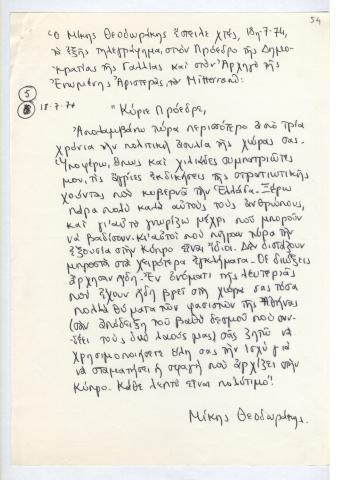 54
Ὁ Μίκης Θεοδωράκης ἔστειλε χτές, 18η-7.74,
τὸ ἑξῆς τηλεγράφημα, στὸν Πρόεδρο τῆς Δημο-
κρατίας τῆς Γαλλίας καὶ στὸν Ἀρχηγὸ τῆς
Ἑνωμένης Ἀριστερᾶς, τὸν Mitterand:
5
18.7.74
"Κύριε Πρόεδρε,
Ἀπολαμβάνω τώρα περισσότερο ἀπὸ τρία
χρόνια τὴν πολιτικὴ ἀσυλία τῆς χώρας σας.
Ὑποφέρω, ὅπως καὶ χιλιάδες συμπατριῶτες
μου, τὶς ἄγριες ἐκδικήσεις τῆς στρατιωτικῆς
χούντας ποὺ κυβερνᾶ τὴν Ἑλλάδα. Ξέρω
πάρα πολὺ καλὰ αὐτοὺς τοὺς ἀνθρώπους,
καὶ γι'αὐτὸ γνωρίζω μέχρι ποῦ μποροῦν
νὰ βαδίσουν. Κι'αὐτοὶ ποὺ πῆραν τώρα τὴν
ἐξουσία στὴν Κύπρο εἶναι ἴδιοι. Δὲν διστάζουν
μπροστὰ στὰ χειρότερα ἐγκλήματα. Οἱ διώξεις
ἄρχισαν ἤδη. Ἐν ὀνόματι τῆς λευτεριᾶς
ποὺ ἔχουν ἤδη βρεῖ στὴ χώρα σας τόσα
πολλὰ θύματα τῶν φασιστῶν τῆς Ἀθήνας
(σὰν ἀπόδειξη τοῦ βαθὺ δεσμοῦ ποὺ συν-
δέει τοὺς δυὸ λαούς μας) σᾶς ζητῶ νὰ
χρησιμοποιήσετε ὅλη σας τὴν ἰσχὺ γιὰ
νὰ σταματήσει ἡ σφαγὴ ποὺ ἀρχίζει στὴν
Κύπρο. Κάθε λεπτὸ εἶναι πολύτιμο".
Μίκης Θεοδωράκης.